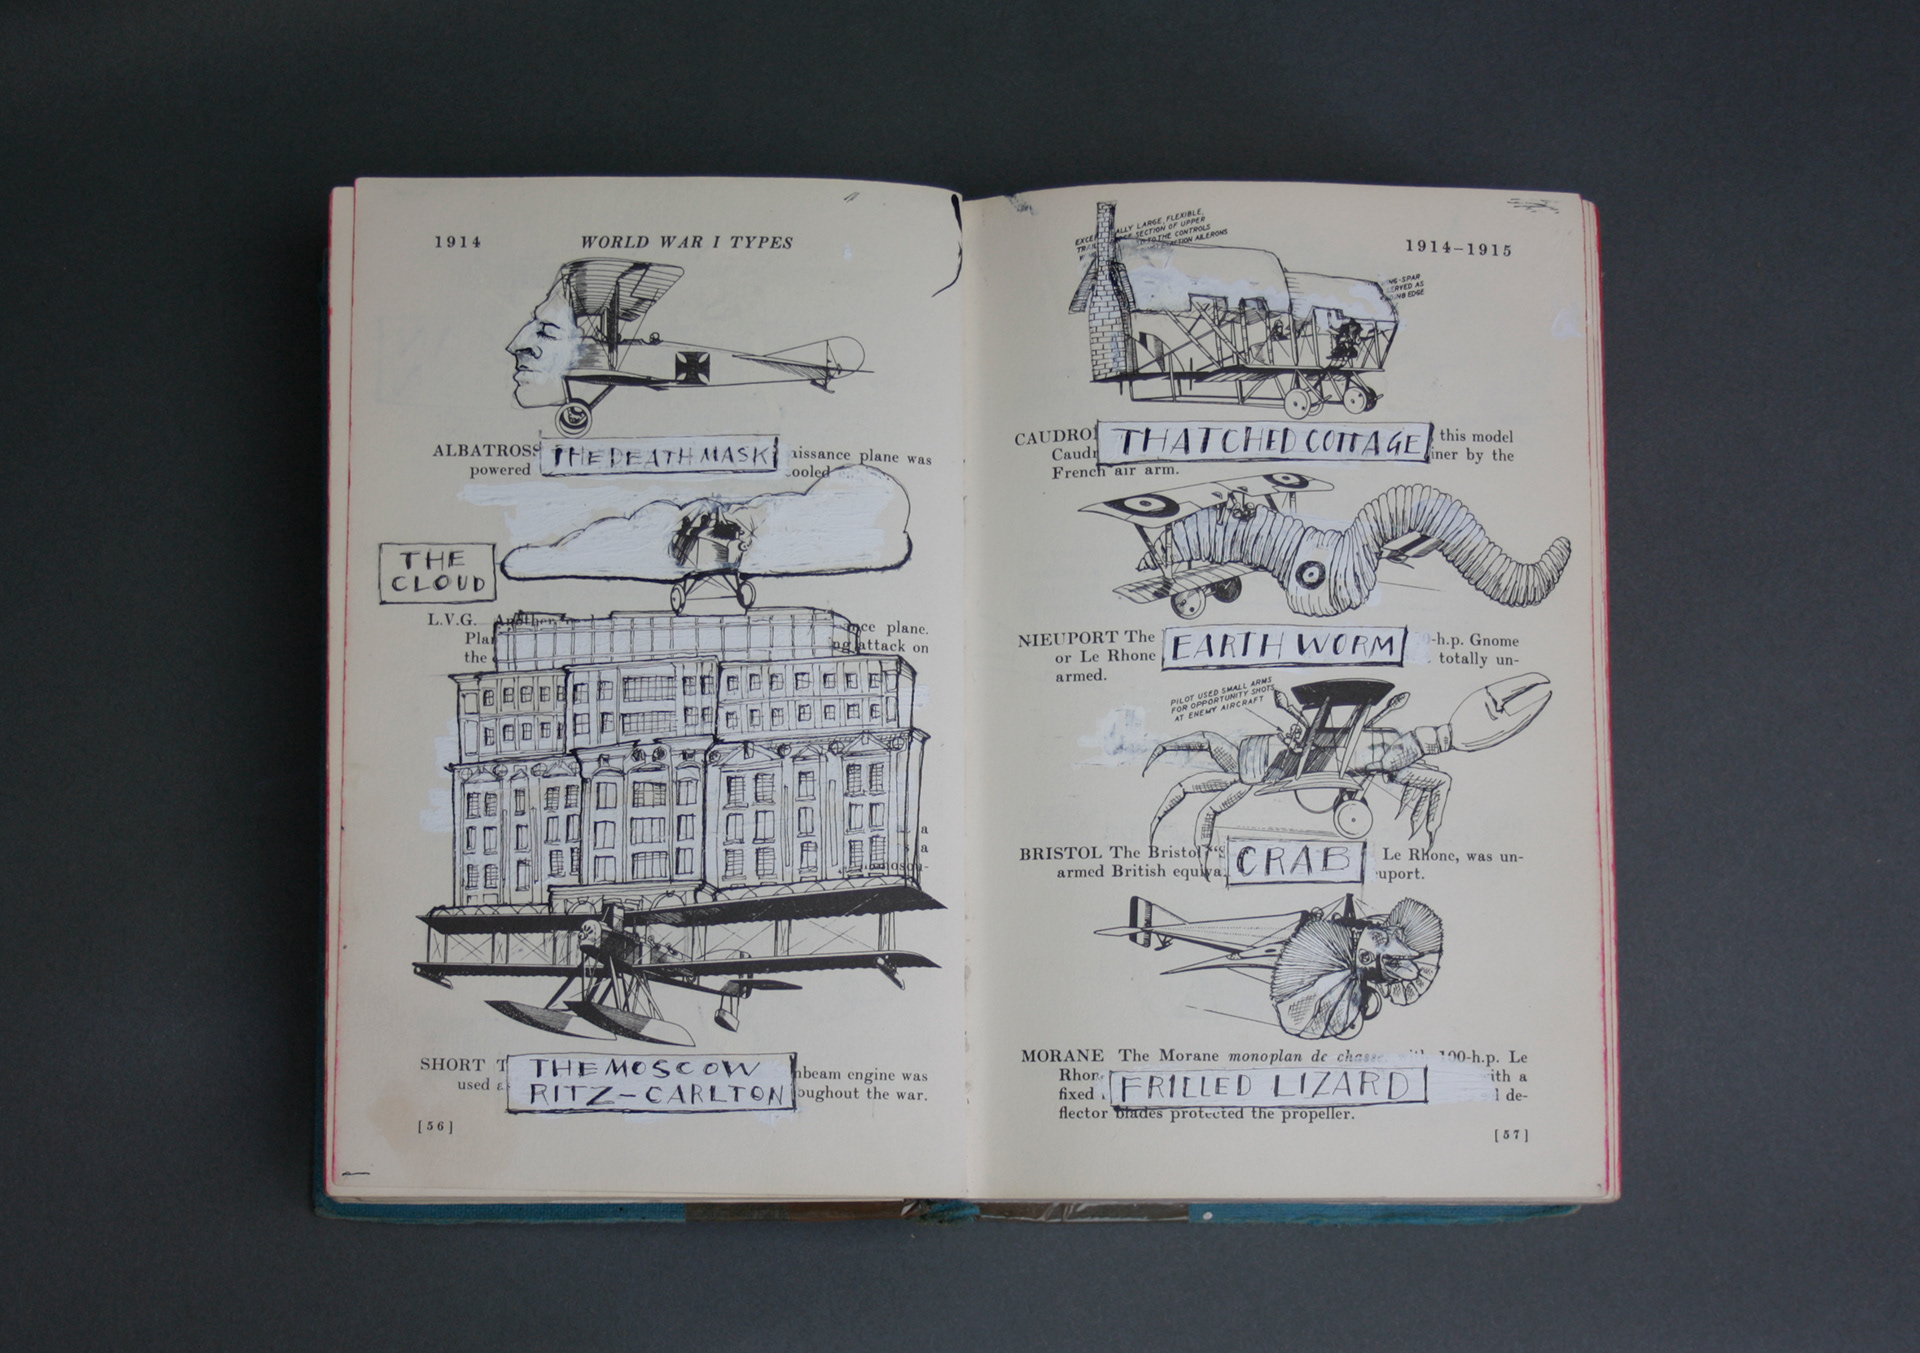 1914
WORLD WAR I TYPES
ALBATROSS THE DEATH MASK aissance plane was
powered ooled
THE
CLOUD
L.V.G. Another nce plane.
Pla
the ng attack on
a
a
SHORT T THE MOSCOW nbeam engine was
used a RITZ-CARLTON oughout the war.
[56]
1914–1915
ALLY LARGE, FLEXIBLE,
CE SECTION OF UPPER
TO THE CONTROLS
ACTION AILERONS
NG-SPAR
ERVED AS
ING EDGE
CAUDRO THATCHED COTTAGE this model
Caudr iner by the
French air arm.
NIEUPORT The EARTH WORM 0-h.p. Gnome
or Le Rhone totally un-
armed.
PILOT USED SMALL ARMS
FOR OPPORTUNITY SHOTS
AT ENEMY AIRCRAFT
BRISTOL The Bristol "S CRAB Le Rhone, was un-
armed British equiva euport.
MORANE The Morane monoplan de chasse with 100-h.p. Le
Rhon FRILLED LIZARD ith a
fixed d de-
flector blades protected the propeller.
[57]